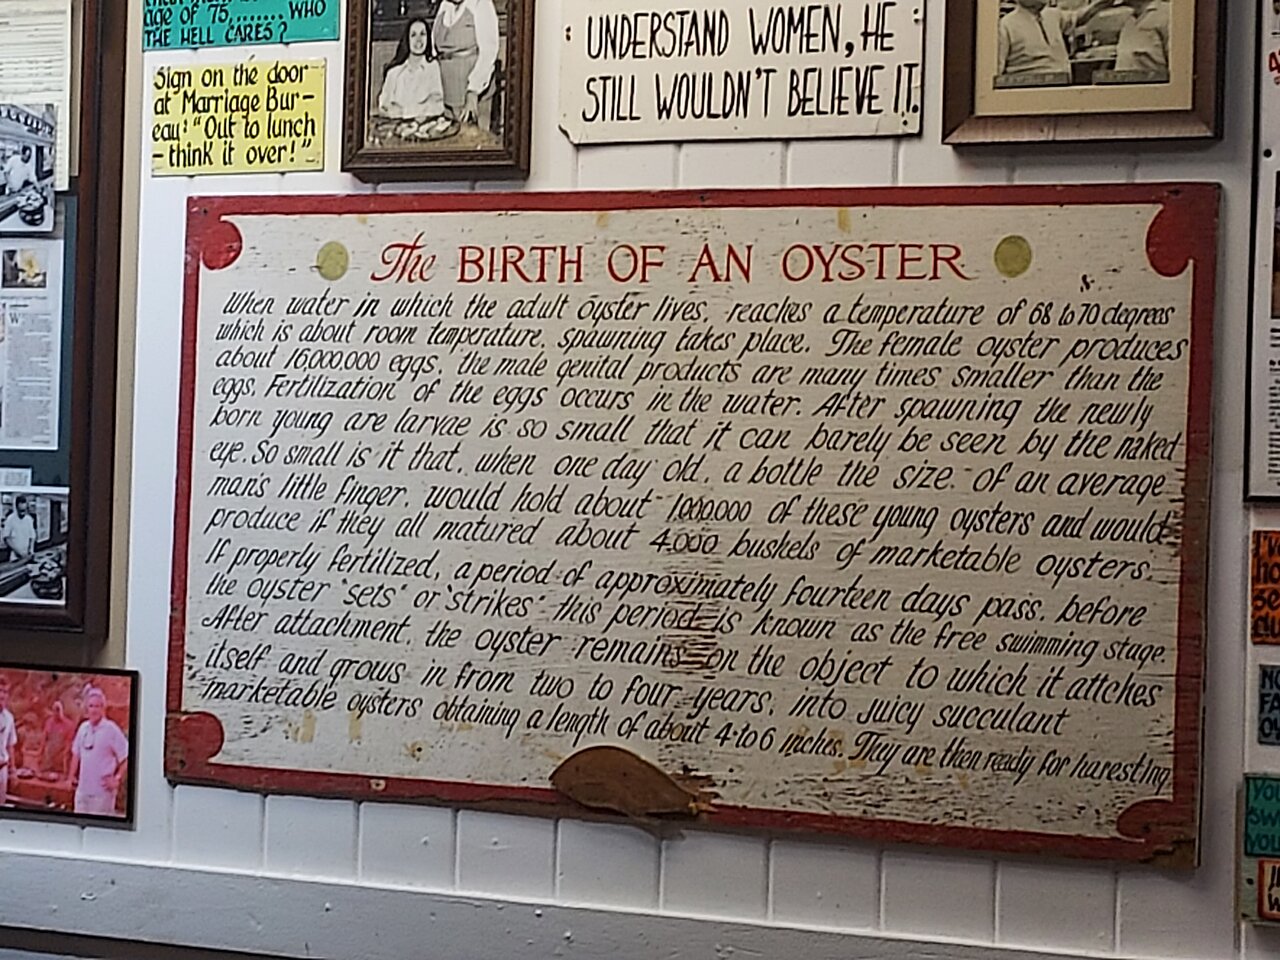 age of 75,........ WHO
THE HELL CARES?
Sign on the door
at Marriage Bur-
eau: "Out to lunch
- think it over!"
UNDERSTAND WOMEN, HE
STILL WOULDN'T BELIEVE IT.
The BIRTH OF AN OYSTER
When water in which the adult oyster lives, reaches a temperature of 68 to 70 degrees
which is about room temperature, spawning takes place. The female oyster produces
about 16,000,000 eggs, the male genital products are many times smaller than the
eggs. Fertilization of the eggs occurs in the water. After spawning the newly
born young are larvae is so small that it can barely be seen by the naked
eye. So small is it that, when one day old, a bottle the size of an average
man's little finger, would hold about 1,000,000 of these young oysters and would
produce if they all matured about 4,000 bushels of marketable oysters.
If properly fertilized, a period of approximately fourteen days pass, before
the oyster "sets" or "strikes" this period is known as the free swimming stage.
After attachment, the oyster remains on the object to which it attches
itself and grows in from two to four years, into juicy succulant
marketable oysters obtaining a length of about 4 to 6 inches. They are then ready for haresting